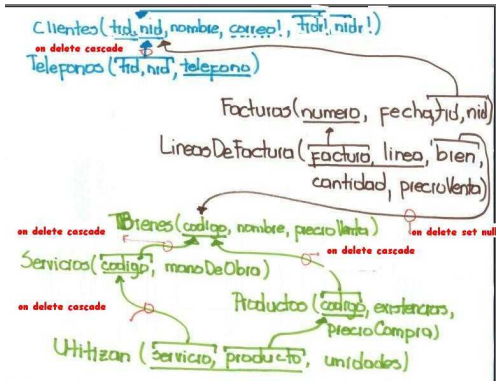 Clientes(tid, nid, nombre, correo!, tidr!, nidr!)
on delete cascade
Telefonos(tid, nid, telefono)
Facturas(numero, fecha, tid, nid)
LineasDeFactura(factura, linea, bien,
cantidad, precioVenta)
on delete set null
Bienes(codigo, nombre, precioVenta)
on delete cascade
on delete cascade
Servicios(codigo, manoDeObra)
Productos(codigo, existencias,
precioCompra)
on delete cascade
Utilizan(servicio, producto, unidades)